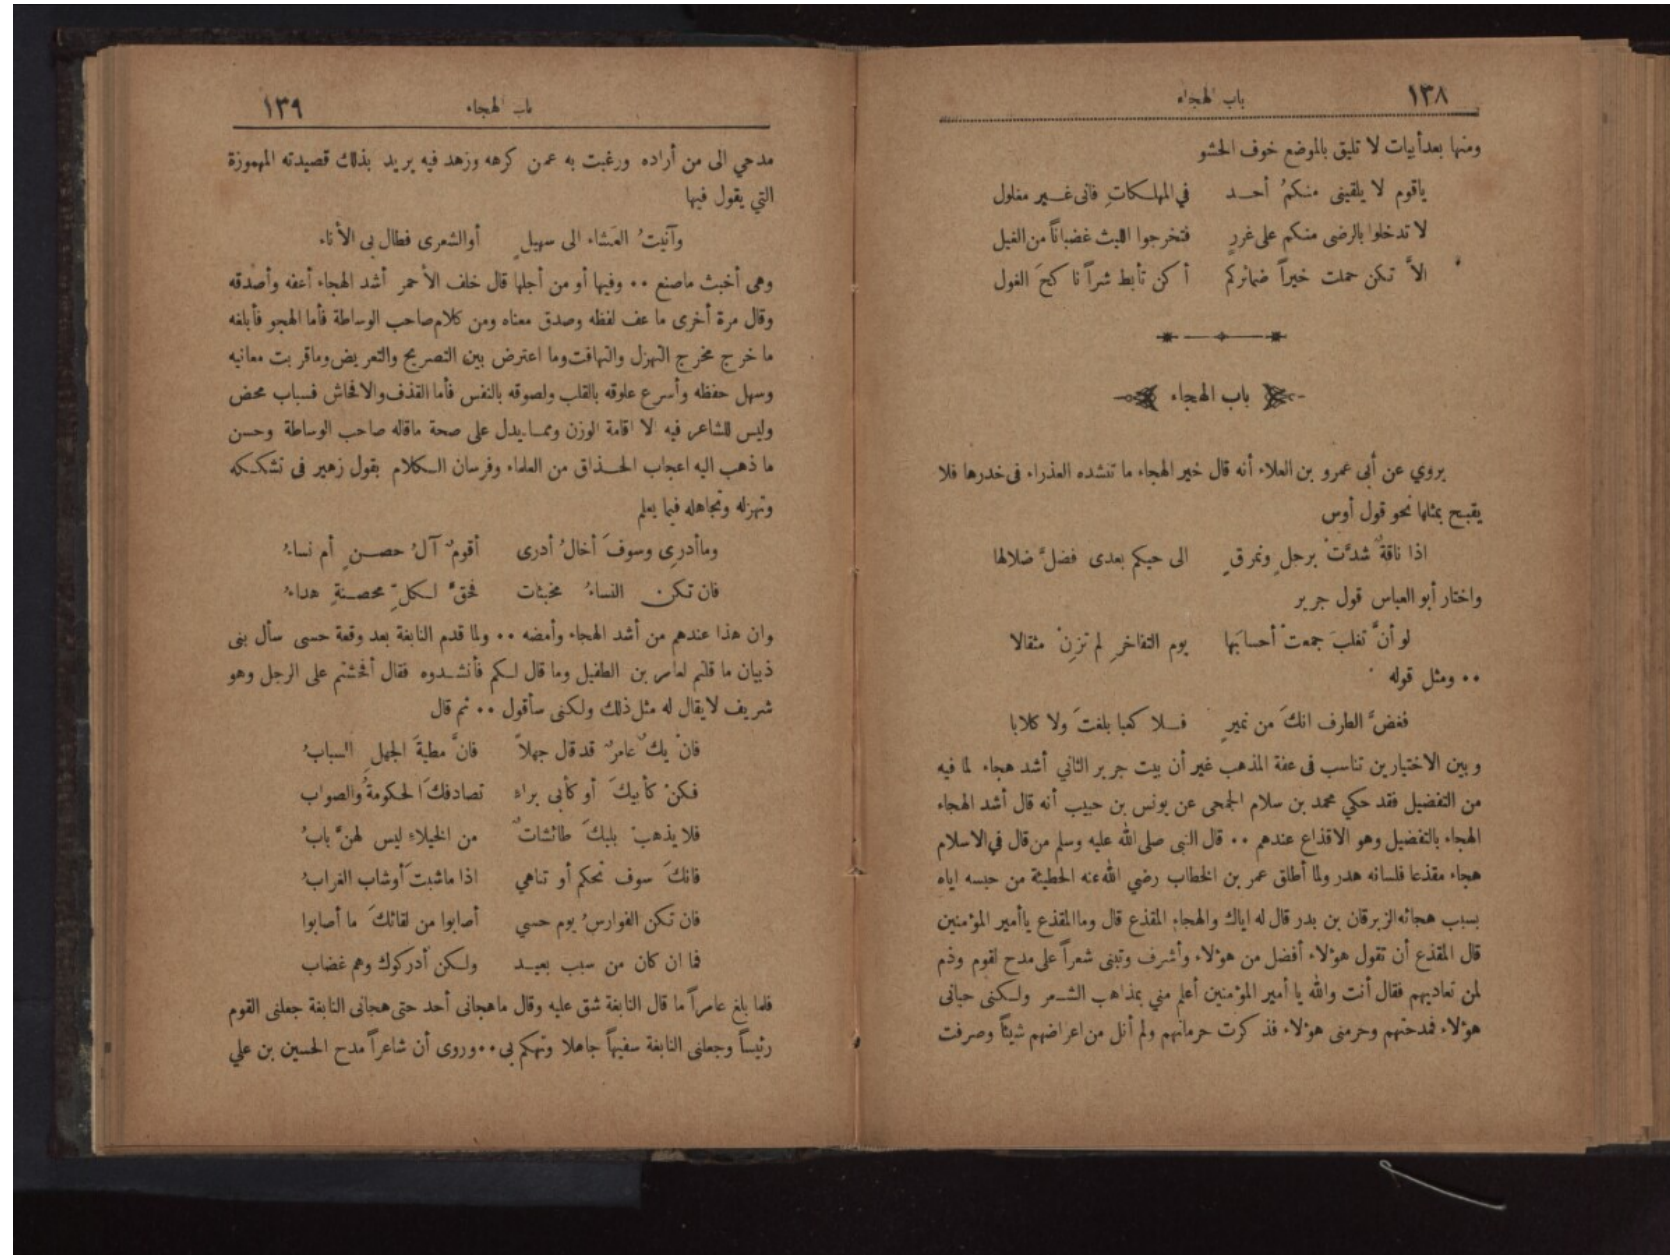 ١٣٨ باب الهجاء
ومنها بعدأبيات لا تليق بالموضع خوف الحشو
ياقوم لا يلقينى منكمُ أحد في المهلكاتِ فانى غير مغلول
لا تدخلوا بالرضى منكم على غررٍ فتخرجوا الليث غضباناً من الغيل
الاَّ تكن حملت خيراً ضمائركم أكن تأبط شراً ناكحَ الغول
باب الهجاء
يروي عن أبى عمرو بن العلاء أنه قال خير الهجاء ما تنشده العذراء فى خدرها فلا
يقبح بمثلها نحو قول أوس
اذا ناقةٌ شدَّتْ برحلٍ ونمرقٍ الى حيكم بعدى فضلَّ ضلالها
واختار أبو العباس قول جرير
لو أنَّ تغلبَ جمعتْ أحسابَها يوم التفاخرِ لم تزنْ مثقالا
٠٠ ومثل قوله
فغضَّ الطرف انكَ من نميرٍ فلا كعبا بلغتَ ولا كلابا
وبين الاختيارين تناسب فى عفة المذهب غير أن بيت جرير الثاني أشد هجاء لما فيه
من التفضيل فقد حكي محمد بن سلام الجمحى عن يونس بن حبيب أنه قال أشد الهجاء
الهجاء بالتفضيل وهو الاقذاع عندهم ٠٠ قال النبى صلى الله عليه وسلم من قال في الاسلام
هجاء مقذعا فلسانه هدر ولما أطلق عمر بن الخطاب رضي الله عنه الحطيئة من حبسه اياه
بسبب هجائه الزبرقان بن بدر قال له اياك والهجاء المقذع قال وما المقذع ياأمير المؤمنين
قال المقذع أن تقول هؤلاء أفضل من هؤلاء وأشرف وتبنى شعراً على مدح لقوم وذم
لمن تعاديهم فقال أنت والله يا أمير المؤمنين أعلم مني بمذاهب الشعر ولكنى حبانى
هؤلاء فمدحتهم وحرمنى هؤلاء فذكرت حرمانهم ولم أنل من اعراضهم شيئاً وصرفت
باب الهجاء ١٣٩
مدحي الى من أراده ورغبت به عمن كرهه وزهد فيه يريد بذلك قصيدته المهموزة
التي يقول فيها
وآنيتُ العَشاء الى سهيلٍ أوالشعرى فطال بى الأناء
وهى أخبث ماصنع ٠٠ وفيها أو من أجلها قال خلف الأحمر أشد الهجاء أعفه وأصدقه
وقال مرة أخرى ما عف لفظه وصدق معناه ومن كلام صاحب الوساطة فأما الهجو فأبلغه
ما خرج مخرج الهزل والتهافت وما اعترض بين التصريح والتعريض وماقربت معانيه
وسهل حفظه وأسرع علوقه بالقلب ولصوقه بالنفس فأما القذف والافحاش فسباب محض
وليس للشاعر فيه الا اقامة الوزن ومما يدل على صحة ماقاله صاحب الوساطة وحسن
ما ذهب اليه اعجاب الحذاق من العلماء وفرسان الكلام بقول زهير فى تشككه
وتهزله وتجاهله فيما يعلم
وماأدرى وسوفَ أخالُ أدرى أقومٌ آلُ حصنٍ أم نساءُ
فان تكن النساءُ مخبئات فحقَّ لكلِّ محصنةٍ هداءُ
وان هذا عندهم من أشد الهجاء وأمضه ٠٠ ولما قدم النابغة بعد وقعة حسى سأل بنى
ذبيان ما قلتم لعامر بن الطفيل وما قال لكم فأنشدوه فقال أفحشتم على الرجل وهو
شريف لايقال له مثل ذلك ولكنى سأقول ٠٠ ثم قال
فانْ يك عامرٌ قد قال جهلاً فانَّ مطيةَ الجهلِ السبابُ
فكنْ كأبيكَ أو كأبى براءِ تصادفكَ الحكومةُ والصواب
فلا يذهبْ بلبكَ طائشاتٌ من الخيلاءِ ليس لهنَّ بابُ
فانكَ سوف تحكم أو تناهي اذا ماشبتَ أوشاب الغرابُ
فان تكن الفوارسُ يوم حسي أصابوا من لقائكَ ما أصابوا
فما ان كان من سبب بعيد ولكن أدركوك وهم غضاب
فلما بلغ عامراً ما قال النابغة شق عليه وقال ماهجانى أحد حتى هجانى النابغة جعلنى القوم
رئيساً وجعلنى النابغة سفيهاً جاهلا وتهكم بى ٠٠ وروى أن شاعراً مدح الحسين بن علي